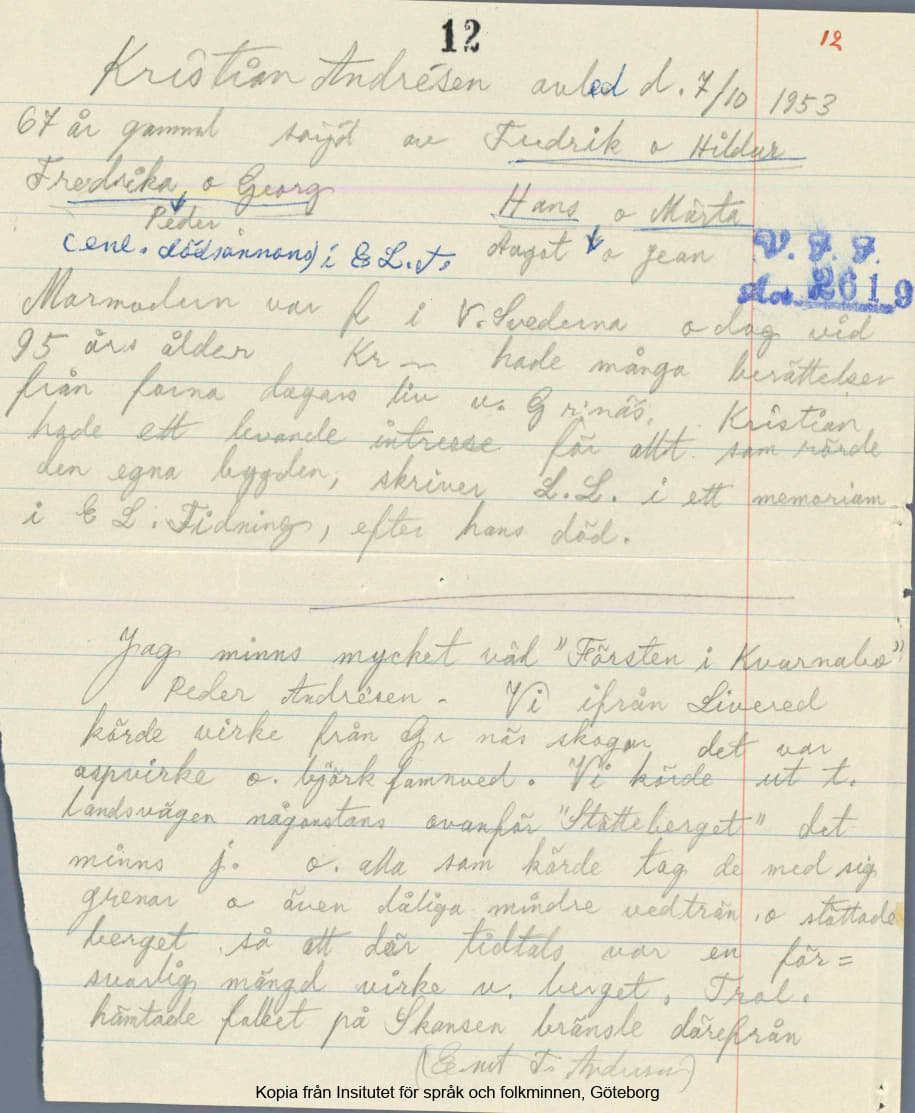 12
12
Kristian Andrésen avled d. 7/10 1953
67 år gammal sörjd av Fredrik o Hildur
Fredrika o Georg Hans o Märta
Peder
(enl. dödsannons) i E L.T. Aagot o Jean
V. F. F.
2619
Mormodern var f i V. Svederna o dog vid
95 års ålder Kr — hade många berättelser
från forna dagars liv v. G r:näs. Kristian
hade ett levande intresse för allt som rörde
den egna bygden, skriver L.L. i ett memoriam
i E L. Tidning, efter hans död.
Jag minns mycket väl "Försten i Kvarnabo"
Peder Andrésen - Vi ifrån Livered
körde virke från G r näs skogar det var
aspvirke o. björk famnved. Vi körde ut t.
landsvägen någonstans ovanför "Stötteberget" det
minns j. o. alla som körde tog de med sig
grenar o även dåliga mindre vedträn o stöttade
berget så att där tidtals var en för=
svarlig mängd virke v. berget. Trol.
hämtade folket på Skansen bränsle därefrån
Kopia från Insitutet för språk och folkminnen, Göteborg